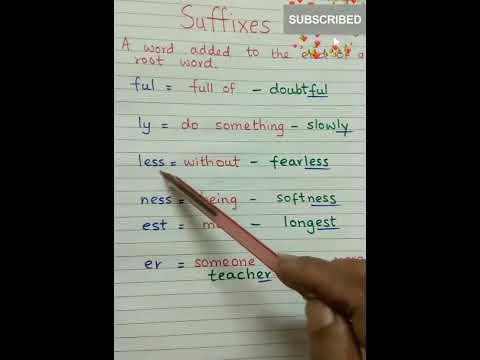 Suffixes
SUBSCRIBED
A word added to the end of a
root word.
ful = full of - doubtful
ly = do something - slowly
less = without - fearless
ness = being - softness
est = - longest
er = someone
teacher